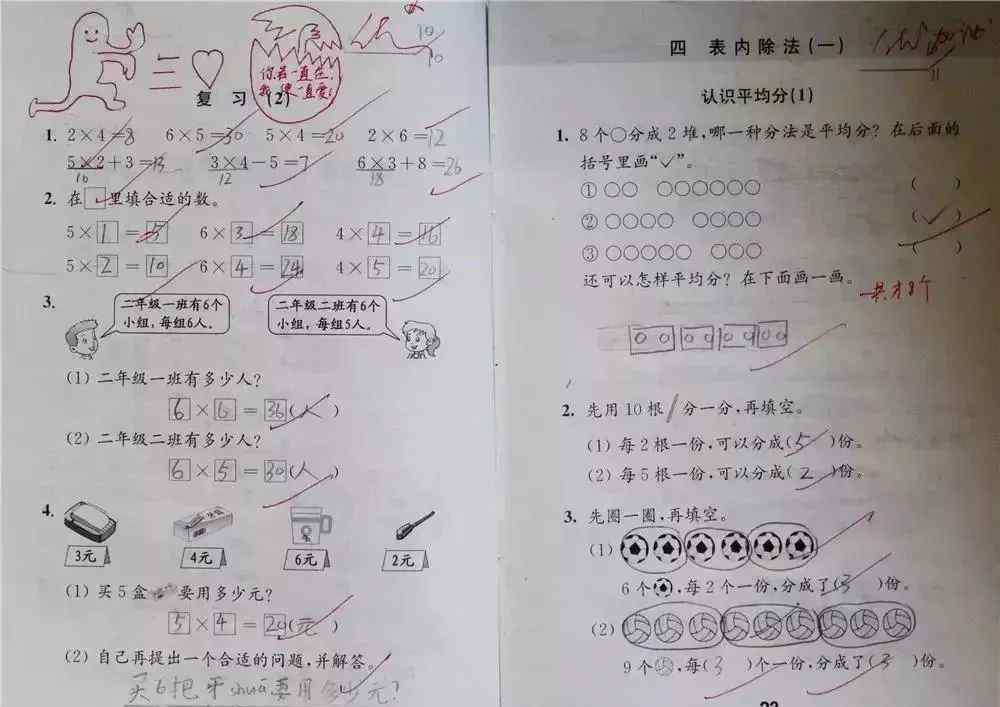 10
10
你若一直在,
我便一直爱!
复 习 (2)
1. 2×4=8 6×5=30 5×4=20 2×6=12
5×2+3=13 3×4-5=7 6×3+8=26
10 12 18
2. 在□里填合适的数。
5×1=5 6×3=18 4×4=16
5×2=10 6×4=24 4×5=20
3. 二年级一班有6个
小组,每组6人。
二年级二班有6个
小组,每组5人。
(1) 二年级一班有多少人?
6×6=36(人)
(2) 二年级二班有多少人?
6×5=30(人)
4.
3元 4元 6元 2元
(1) 买5盒 要用多少元?
5×4=20(元)
(2) 自己再提出一个合适的问题,并解答。
买6把牙shuā要用多少元?
四 表内除法(一)
认识平均分(1)
1. 8个○分成2堆,哪一种分法是平均分?在后面的
括号里画“✓”。
① ○○ ○○○○○○ ( )
② ○○○○ ○○○○ (✓)
③ ○○○○○ ○○○ ( )
还可以怎样平均分?在下面画一画。
一共才8个
2. 先用10根 分一分,再填空。
(1) 每2根一份,可以分成(5)份。
(2) 每5根一份,可以分成(2)份。
3. 先圈一圈,再填空。
(1)
6个 ,每2个一份,分成了(3)份。
(2)
9个 ,每(3)个一份,分成了(3)份。
23